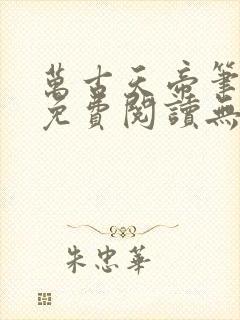 萬古天帝筆
免費閱讀無
朱忠華